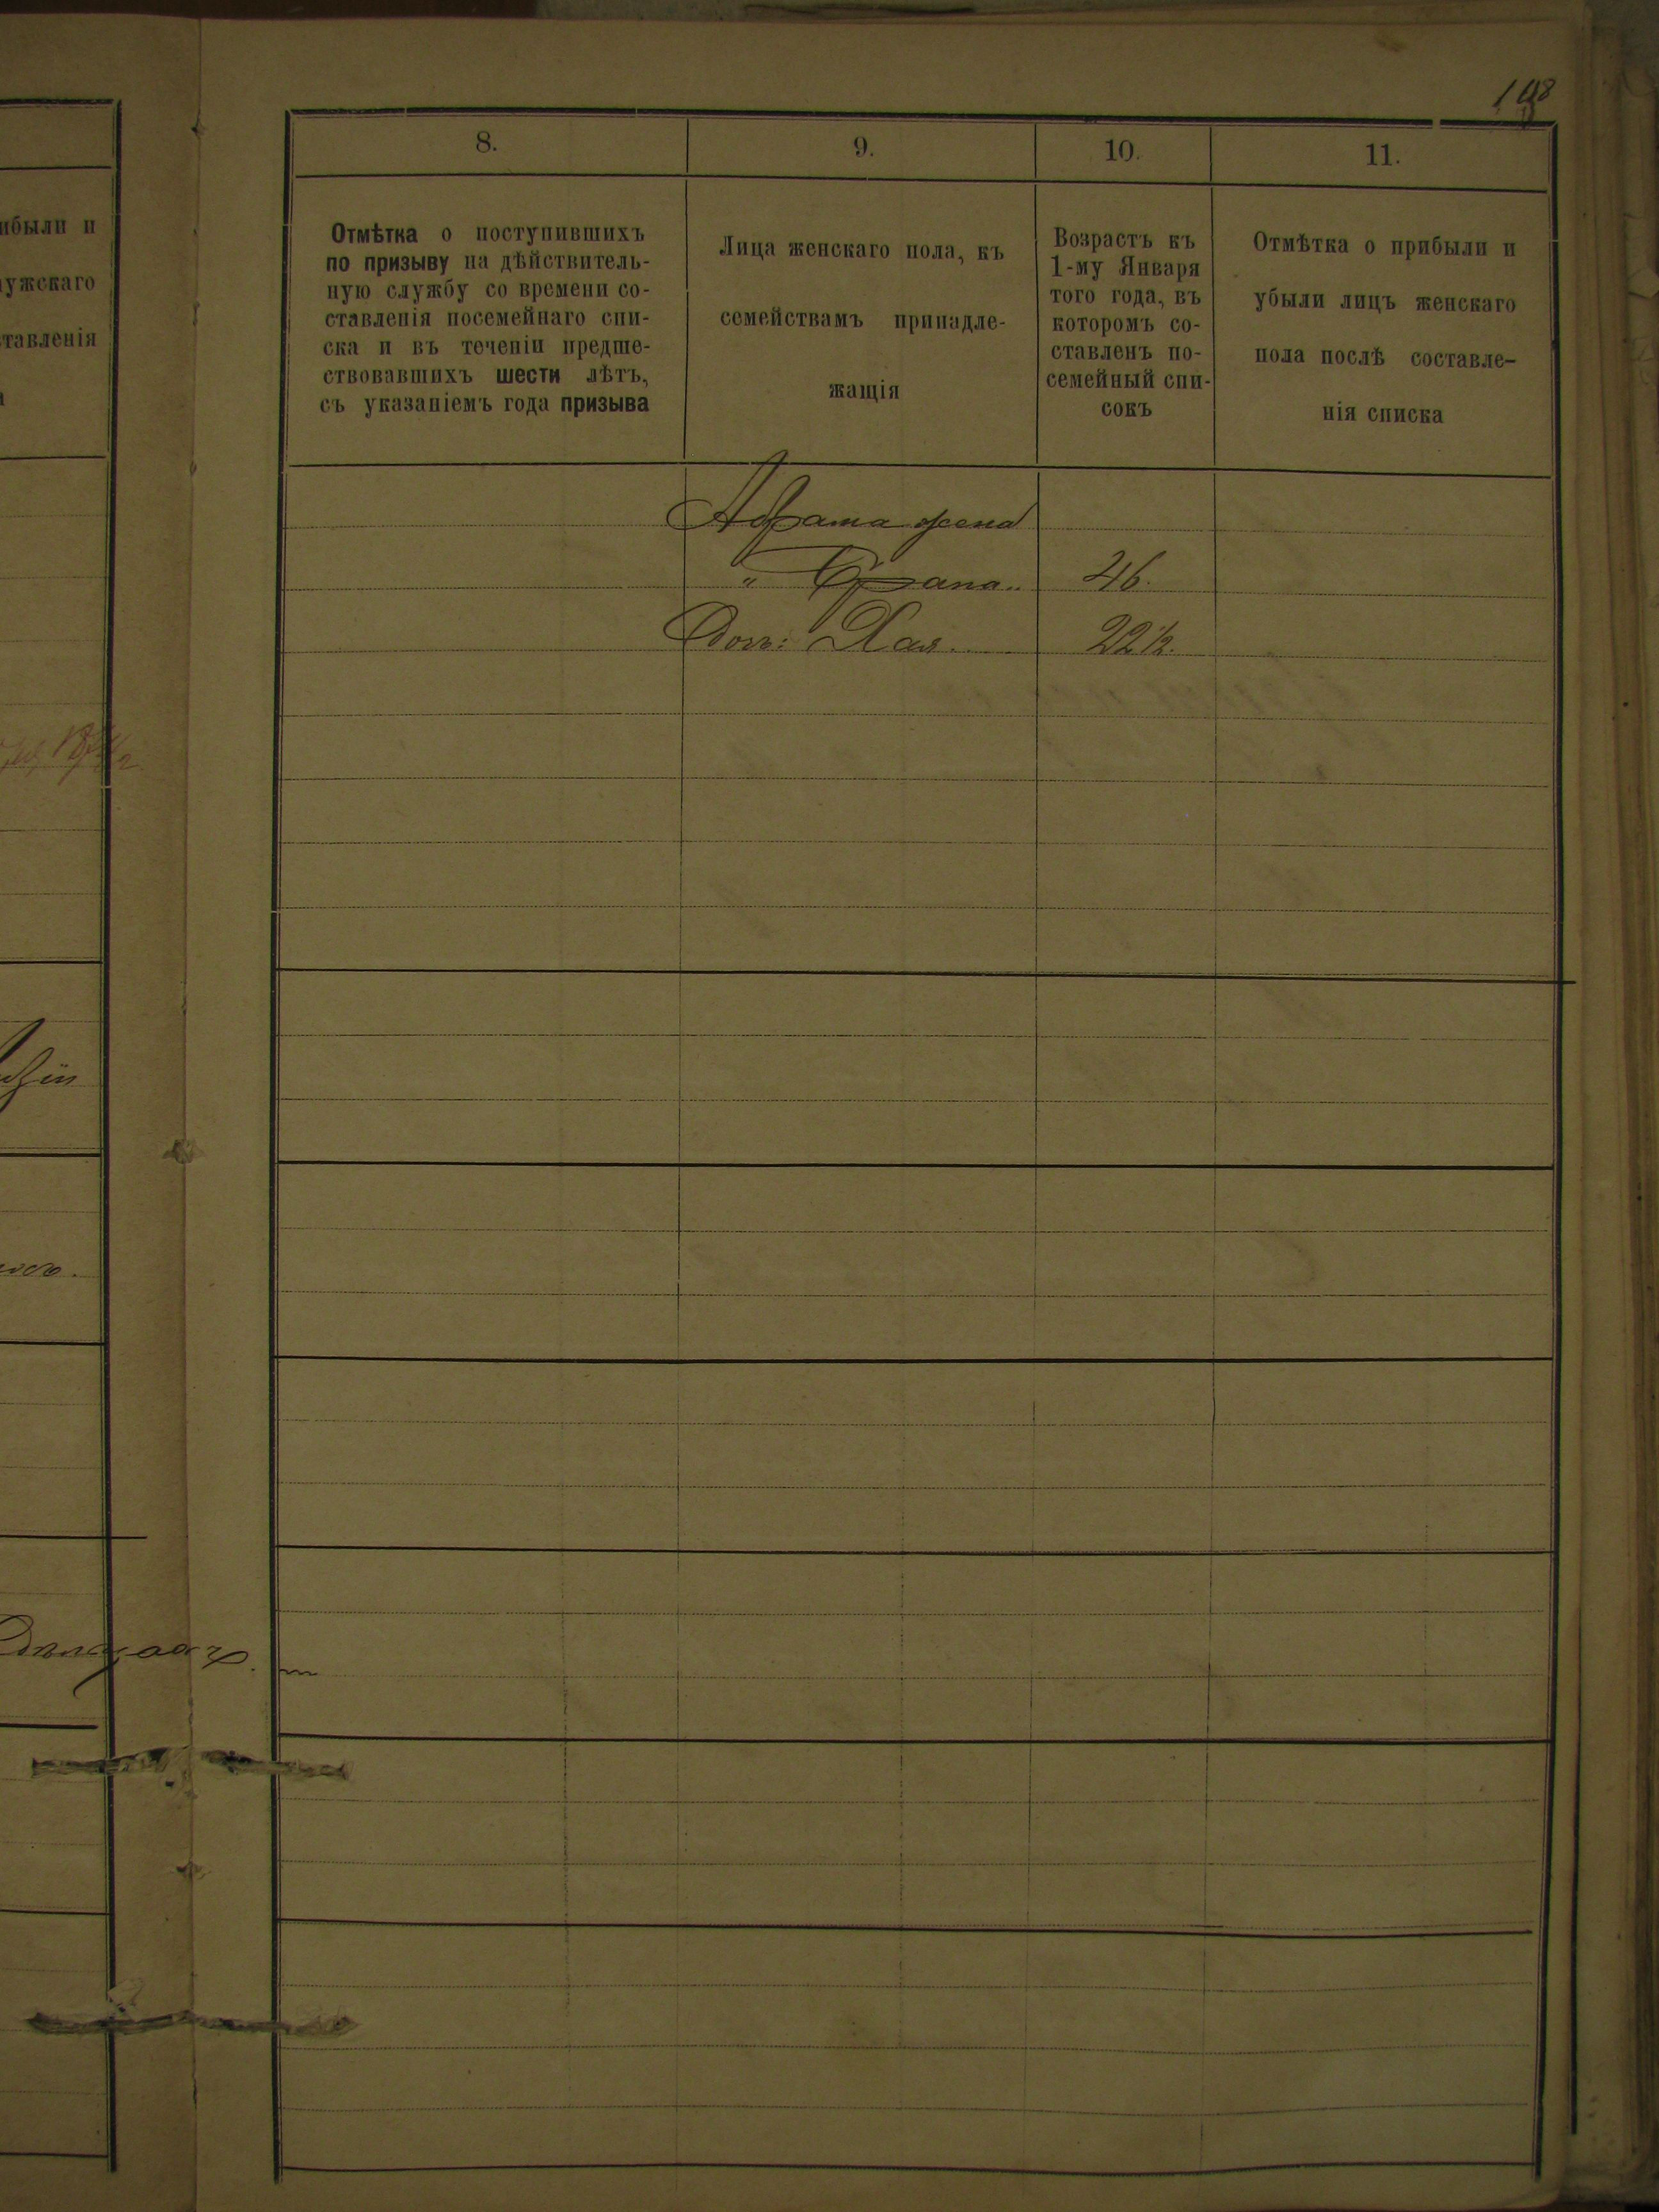 198
ибыли и
ужскаго
тавленія
8.
Отмѣтка о поступившихъ
по призыву на дѣйствитель-
ную службу со времени со-
ставленія посемейнаго спи-
ска и въ теченіи предше-
ствовавшихъ шести лѣтъ,
съ указаніемъ года призыва
9.
Лица женскаго пола, къ
семействамъ принадле-
жащія
10.
Возрастъ къ
1-му Января
того года, въ
которомъ со-
ставленъ по-
семейный спи-
сокъ
11.
Отмѣтка о прибыли и
убыли лицъ женскаго
пола послѣ составле-
нія списка
Абрама жена
" 46.
Доч: Хая. 22½.